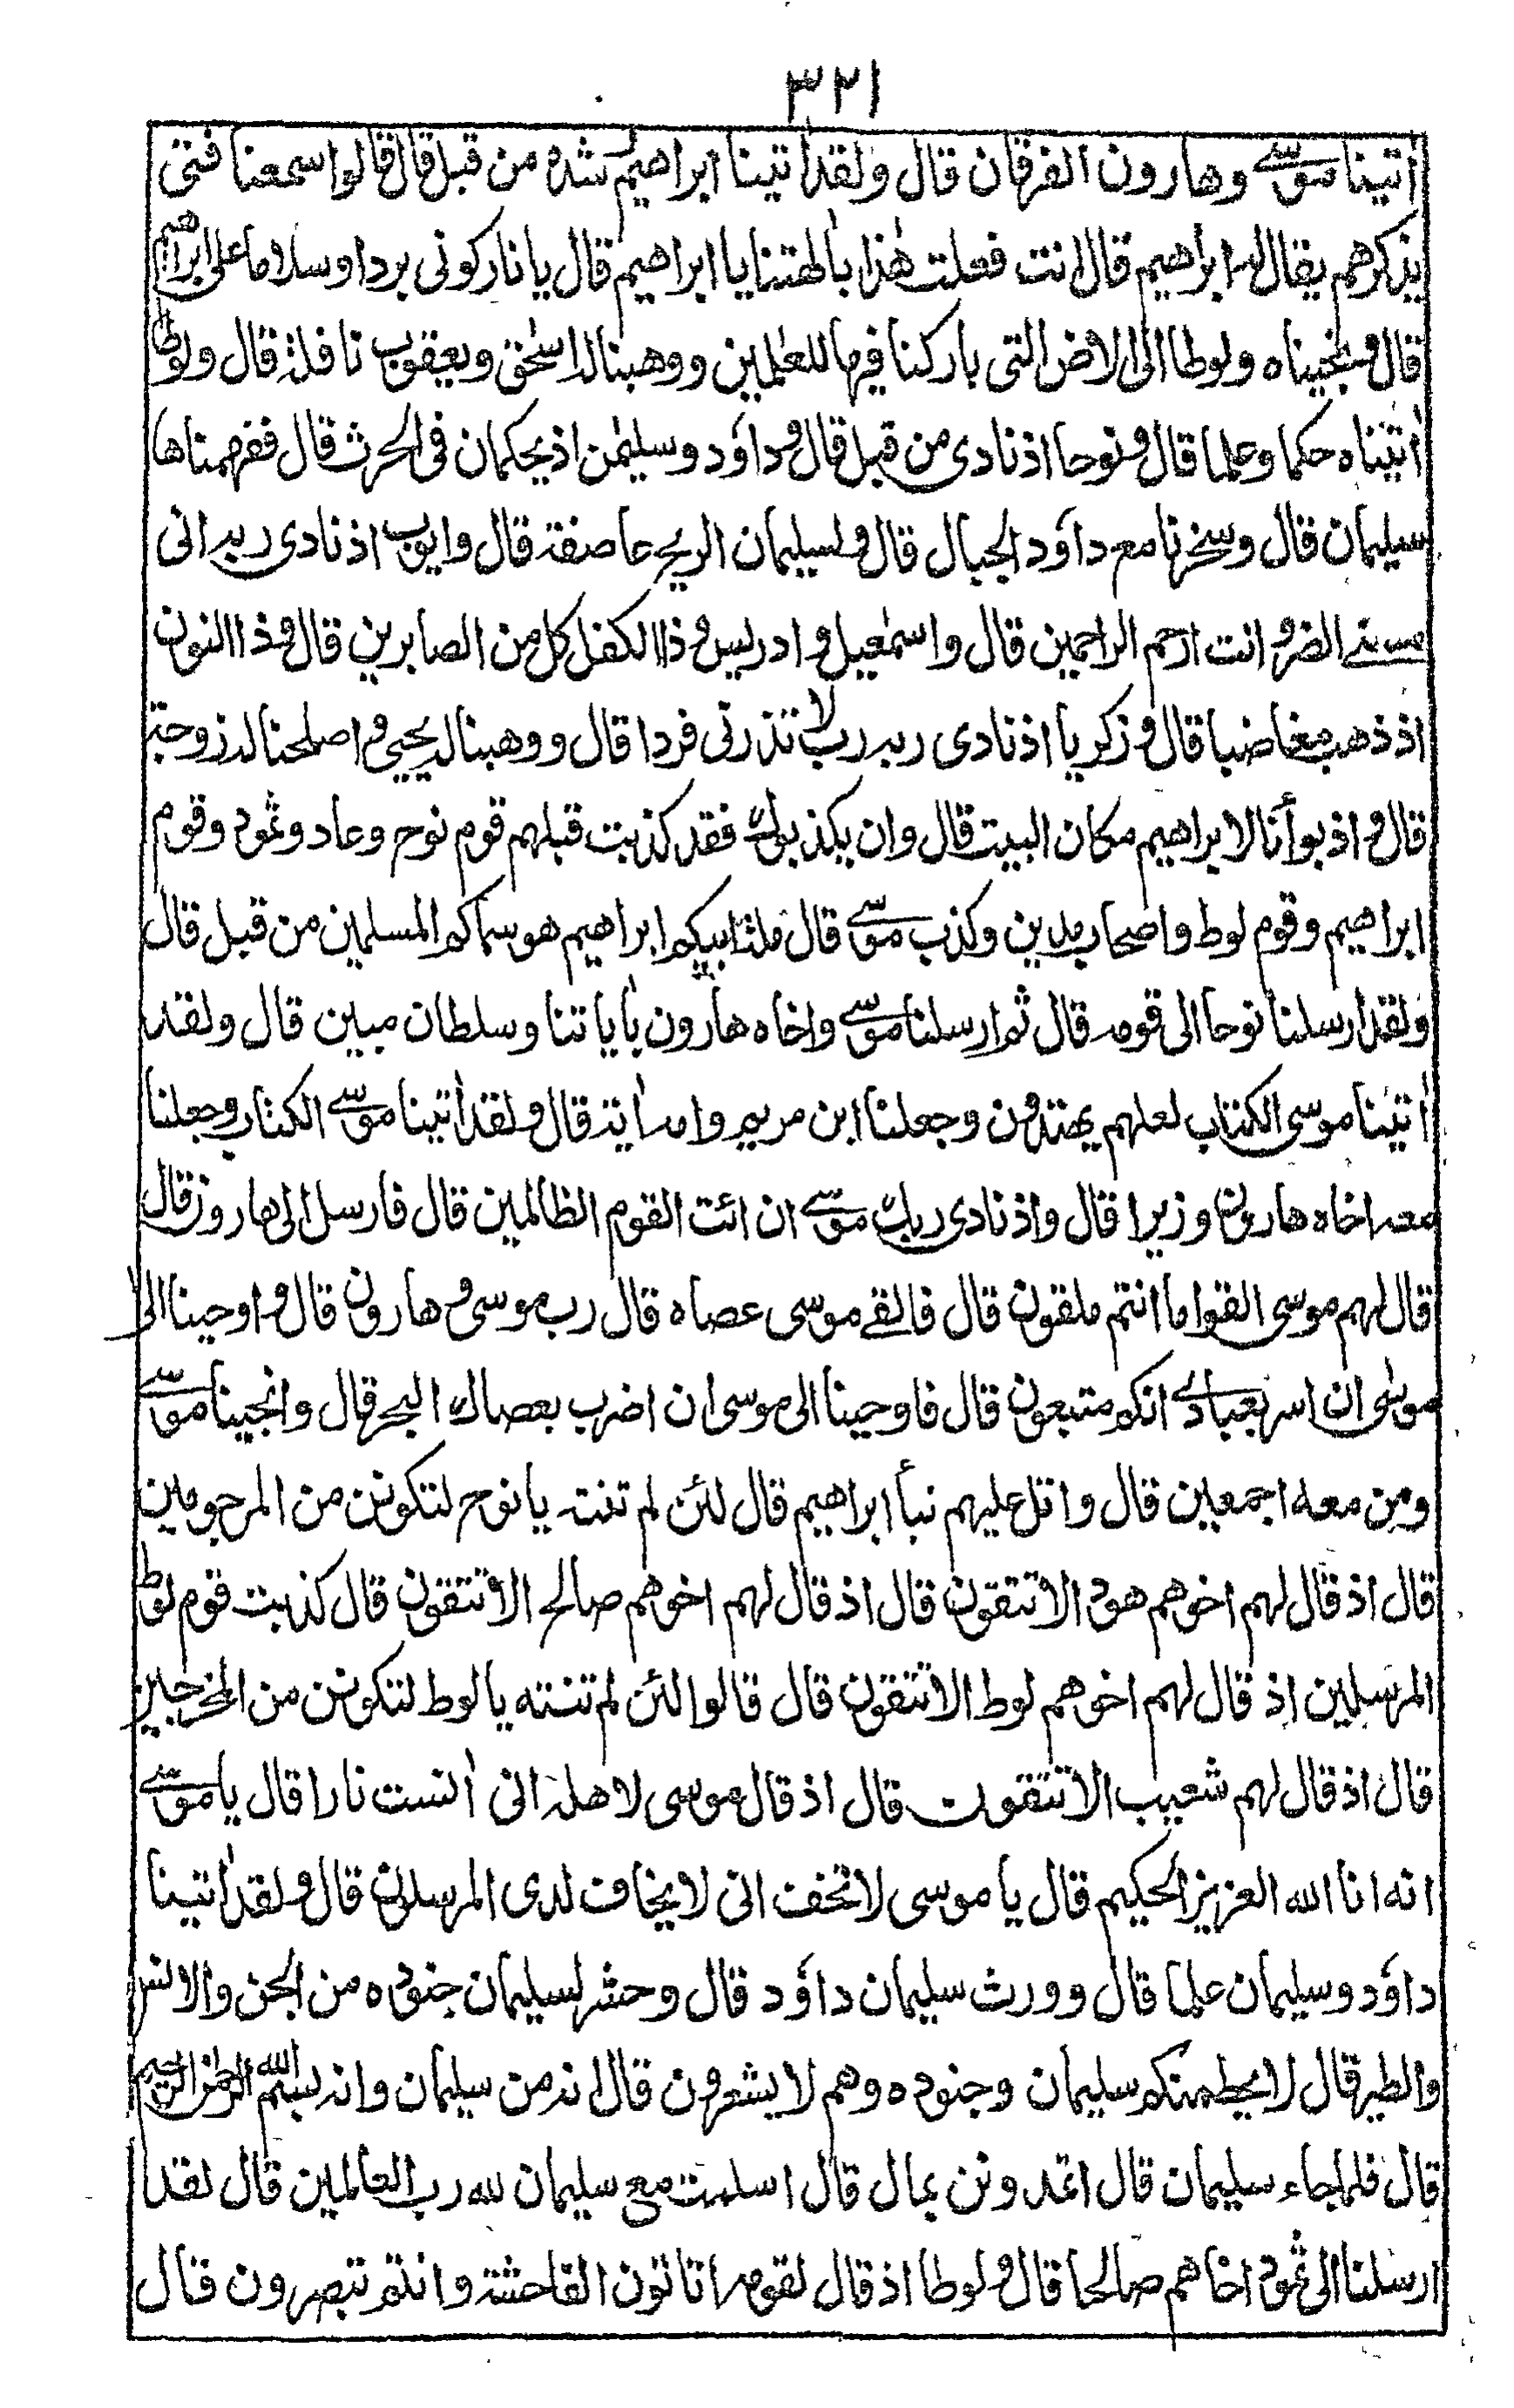 ٣٢١
اٰتينا موسى وهارون الفرقان قال ولقد اٰتينا ابراهيم رشده من قبل قال قالوا سمعنا فتى
يذكرهم يقال له ابراهيم قال ءانت فعلت هٰذا باٰلهتنا يا ابراهيم قال يا نار كونى بردا وسلاما على ابراهيم
قال ونجيناه ولوطا الى الارض التى باركنا فيها للعٰلمين ووهبنا له اسحٰق ويعقوب نافلة قال ولوطا
اٰتيناه حكما وعلما قال ونوحا اذ نادى من قبل قال وداؤد وسليمٰن اذ يحكمان فى الحرث قال ففهمناها
سليمان قال وسخرنا مع داؤد الجبال قال ولسليمان الريح عاصفة قال وايوب اذ نادى ربه انى
مسنى الضر وانت ارحم الراحمين قال واسمٰعيل وادريس وذا الكفل كل من الصابرين قال وذا النون
اذ ذهب مغاضبا قال وزكريا اذ نادى ربه رب لا تذرنى فردا قال ووهبنا له يحيى واصلحنا له زوجه
قال واذ بوأنا لابراهيم مكان البيت قال وان يكذبوك فقد كذبت قبلهم قوم نوح وعاد وثمود وقوم
ابراهيم وقوم لوط واصحاب مدين وكذب موسى قال ملة ابيكم ابراهيم هو سماكم المسلمين من قبل قال
ولقد ارسلنا نوحا الى قومه قال ثم ارسلنا موسى واخاه هارون باٰياتنا وسلطان مبين قال ولقد
اٰتينا موسى الكتاب لعلهم يهتدون وجعلنا ابن مريم وامه اٰية قال ولقد اٰتينا موسى الكتاب وجعلنا
معه اخاه هارون وزيرا قال واذ نادى ربك موسى ان ائت القوم الظالمين قال فارسل الى هارون قال
قال لهم موسى القوا ما انتم ملقون قال فالقى موسى عصاه قال رب موسى وهارون قال واوحينا الى
موسى ان اسر بعبادى انكم متبعون قال فاوحينا الى موسى ان اضرب بعصاك البحر قال وانجينا موسى
ومن معه اجمعين قال واتل عليهم نبأ ابراهيم قال لئن لم تنته يا نوح لتكونن من المرجومين
قال اذ قال لهم اخوهم هود الا تتقون قال اذ قال لهم اخوهم صالح الا تتقون قال كذبت قوم لوط
المرسلين اذ قال لهم اخوهم لوط الا تتقون قال قالوا لئن لم تنته يا لوط لتكونن من المخرجين
قال اذ قال لهم شعيب الا تتقون قال اذ قال موسى لاهله انى اٰنست نارا قال يا موسى
انه انا الله العزيز الحكيم قال يا موسى لا تخف انى لا يخاف لدى المرسلون قال ولقد اٰتينا
داؤد وسليمان علما قال وورث سليمان داؤد قال وحشر لسليمان جنوده من الجن والانس
والطير قال لا يحطمنكم سليمان وجنوده وهم لا يشعرون قال انه من سليمان وانه بسم الله الرحمٰن الرحيم
قال فلما جاء سليمان قال اتمدونن بمال قال اسلمت مع سليمان لله رب العالمين قال لقد
ارسلنا الى ثمود اخاهم صالحا قال ولوطا اذ قال لقومه اتاتون الفاحشة وانتم تبصرون قال